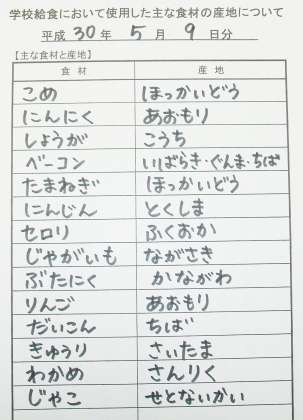 学校給食において使用した主な食材の産地について
平成 30 年 5 月 9 日分
【主な食材と産地】
食材 産地
こめ ほっかいどう
にんにく あおもり
しょうが こうち
ベーコン いばらき・ぐんま・ちば
たまねぎ ほっかいどう
にんじん とくしま
セロリ ふくおか
じゃがいも ながさき
ぶたにく かながわ
りんご あおもり
だいこん ちば
きゅうり さいたま
わかめ さんりく
じゃこ せとないかい